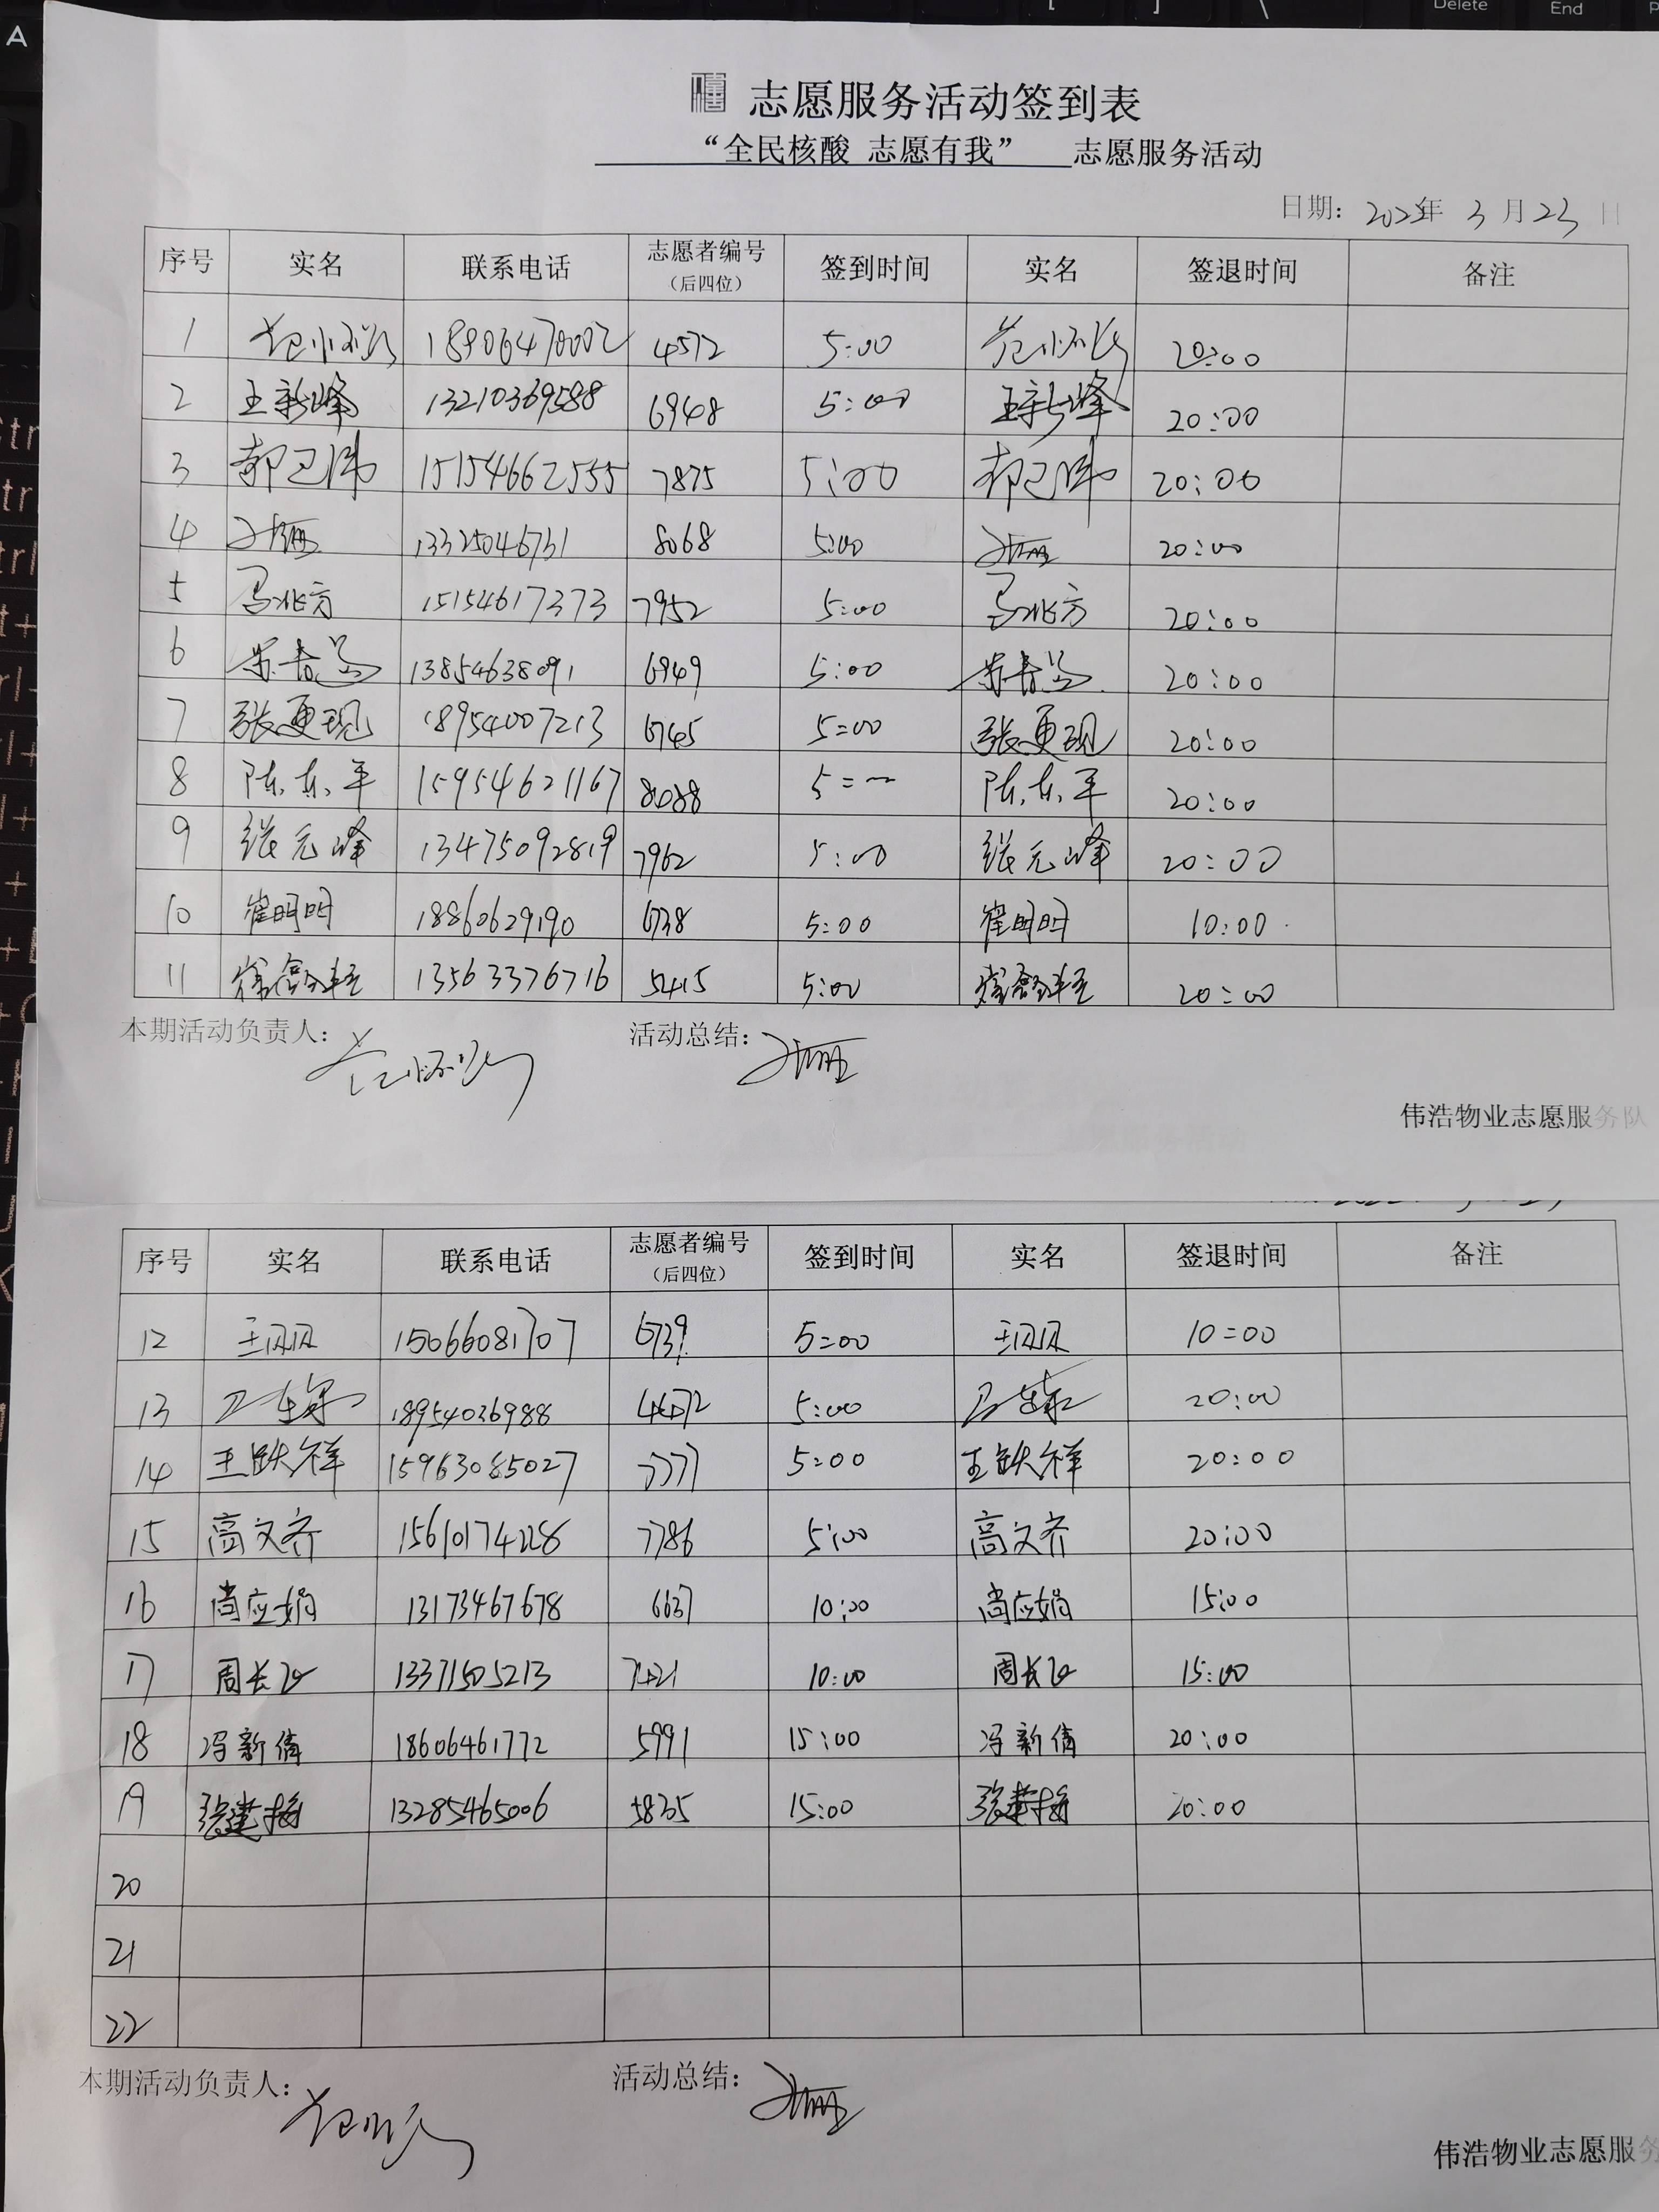 志愿服务活动签到表
“全民核酸 志愿有我” 志愿服务活动
日期：2022年 3月23日
序号 实名 联系电话 志愿者编号（后四位） 签到时间 实名 签退时间 备注
1 18906470002 4572 5:00 20:00
2 王新峰 13210369588 6948 5:00 王新峰 20:00
3 郭卫伟 15154662555 7875 5:00 郭卫伟 20:00
4 13325046731 8068 5:00 20:00
5 马兆方 15154617373 7952 5:00 马兆方 20:00
6 13854638091 6949 5:00 20:00
7 张更现 18954007213 6745 5=00 张更现 20:00
8 陈东平 15954621167 8088 5= 陈东平 20:00
9 张元峰 13475092819 7962 5:00 张元峰 20:00
10 崔明明 18860629190 6738 5:00 崔明明 10:00
11 13563376716 5415 5:00 20:00
本期活动负责人： 活动总结：
伟浩物业志愿服务队
序号 实名 联系电话 志愿者编号（后四位） 签到时间 实名 签退时间 备注
12 王贝贝 15066081707 6739 5=00 王贝贝 10=00
13 18954036988 4472 5:00 20:00
14 王跃祥 15963085027 7777 5:00 王跃祥 20:00
15 高文齐 15610174228 7786 5:00 高文齐 20:00
16 尚应娟 13173467678 6637 10:00 尚应娟 15:00
17 周长 13371505213 7421 10:00 周长 15:00
18 冯新倩 18606461772 5991 15:00 冯新倩 20:00
19 张建梅 13285465006 5835 15:00 张建梅 20:00
20
21
22
本期活动负责人： 活动总结：
伟浩物业志愿服务
A
Delete
End